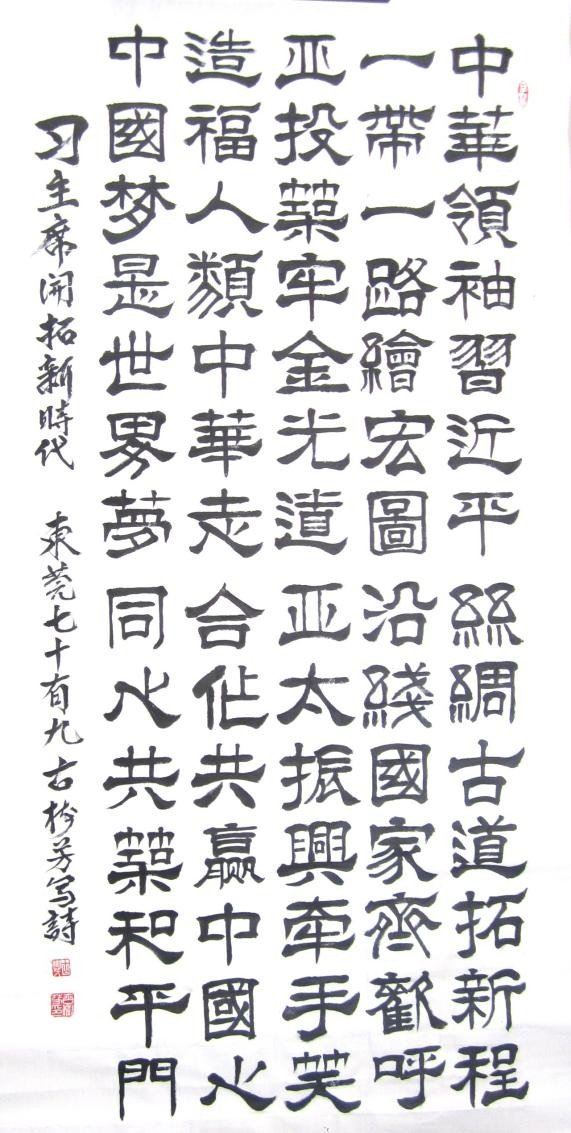 中華領袖習近平絲綢古道拓新程
一帶一路繪宏圖沿綫國家齊歡呼
亚投築牢金光道亚太振興牵手笑
造福人類中華走合作共赢中國心
中國梦是世界夢同心共築和平門
习主席開拓新時代 東莞七十有九古樹芳写詩